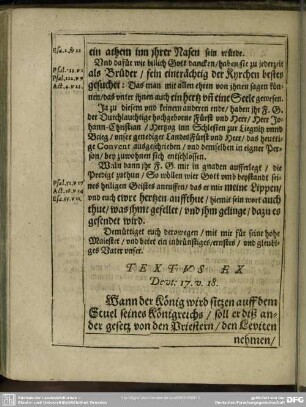 ein athem inn jhrer Nasen sein würde.
Und dafür wir billich Gott dancken/ haben sie zu jederzeit
als Brüder/ fein einträchtig der Kyrchen bestes
gesucht: Das man mit allen ehren von jhnen sagen kön-
nen/ das unter jhnen auch ein hertz uñ eine Seele gewesen.
Ja zu diesem und keinem anderen ende/ haben jhr F. G.
der Durchlauchtige hochgeborne Fürst und Herr/ Herr Jo-
hann-Christian/ Hertzog inn Schlesien zur Liegnitz unnd
Brieg/ unser genediger Landsfürst und Herr/ das heuttige
Convent ausgeschrieben/ und demselben in eigner Per-
son/ bey zuwohnen sich entschlossen.
Wann dann jhr F. G. mir in gnaden aufferlegt/ die
Predigt zuthun/ So wöllen wier Gott umb beystandt sei-
nes heiligen Geistes anruffen/ das er mir meine Lippen/
und euch ewre hertzen auffthue/ hiemit sein wort auch
thue/ was jhmt gefellet/ und jhm gelinge/ dazu es
gesendet wird.
Demüttiget euch derowegen/ mit mir für seine hohe
Maiestet/ und betet ein inbrünstiges/ ernstes/ und gleubi-
ges Vater unser.
TEXTUS EX
Deut: 17. v. 18.
Wann der König wird sitzen auff dem
Stuel seines Königreichs/ soll er diß an-
der gesetz von den Priestern/ den Leviten
nehmen/